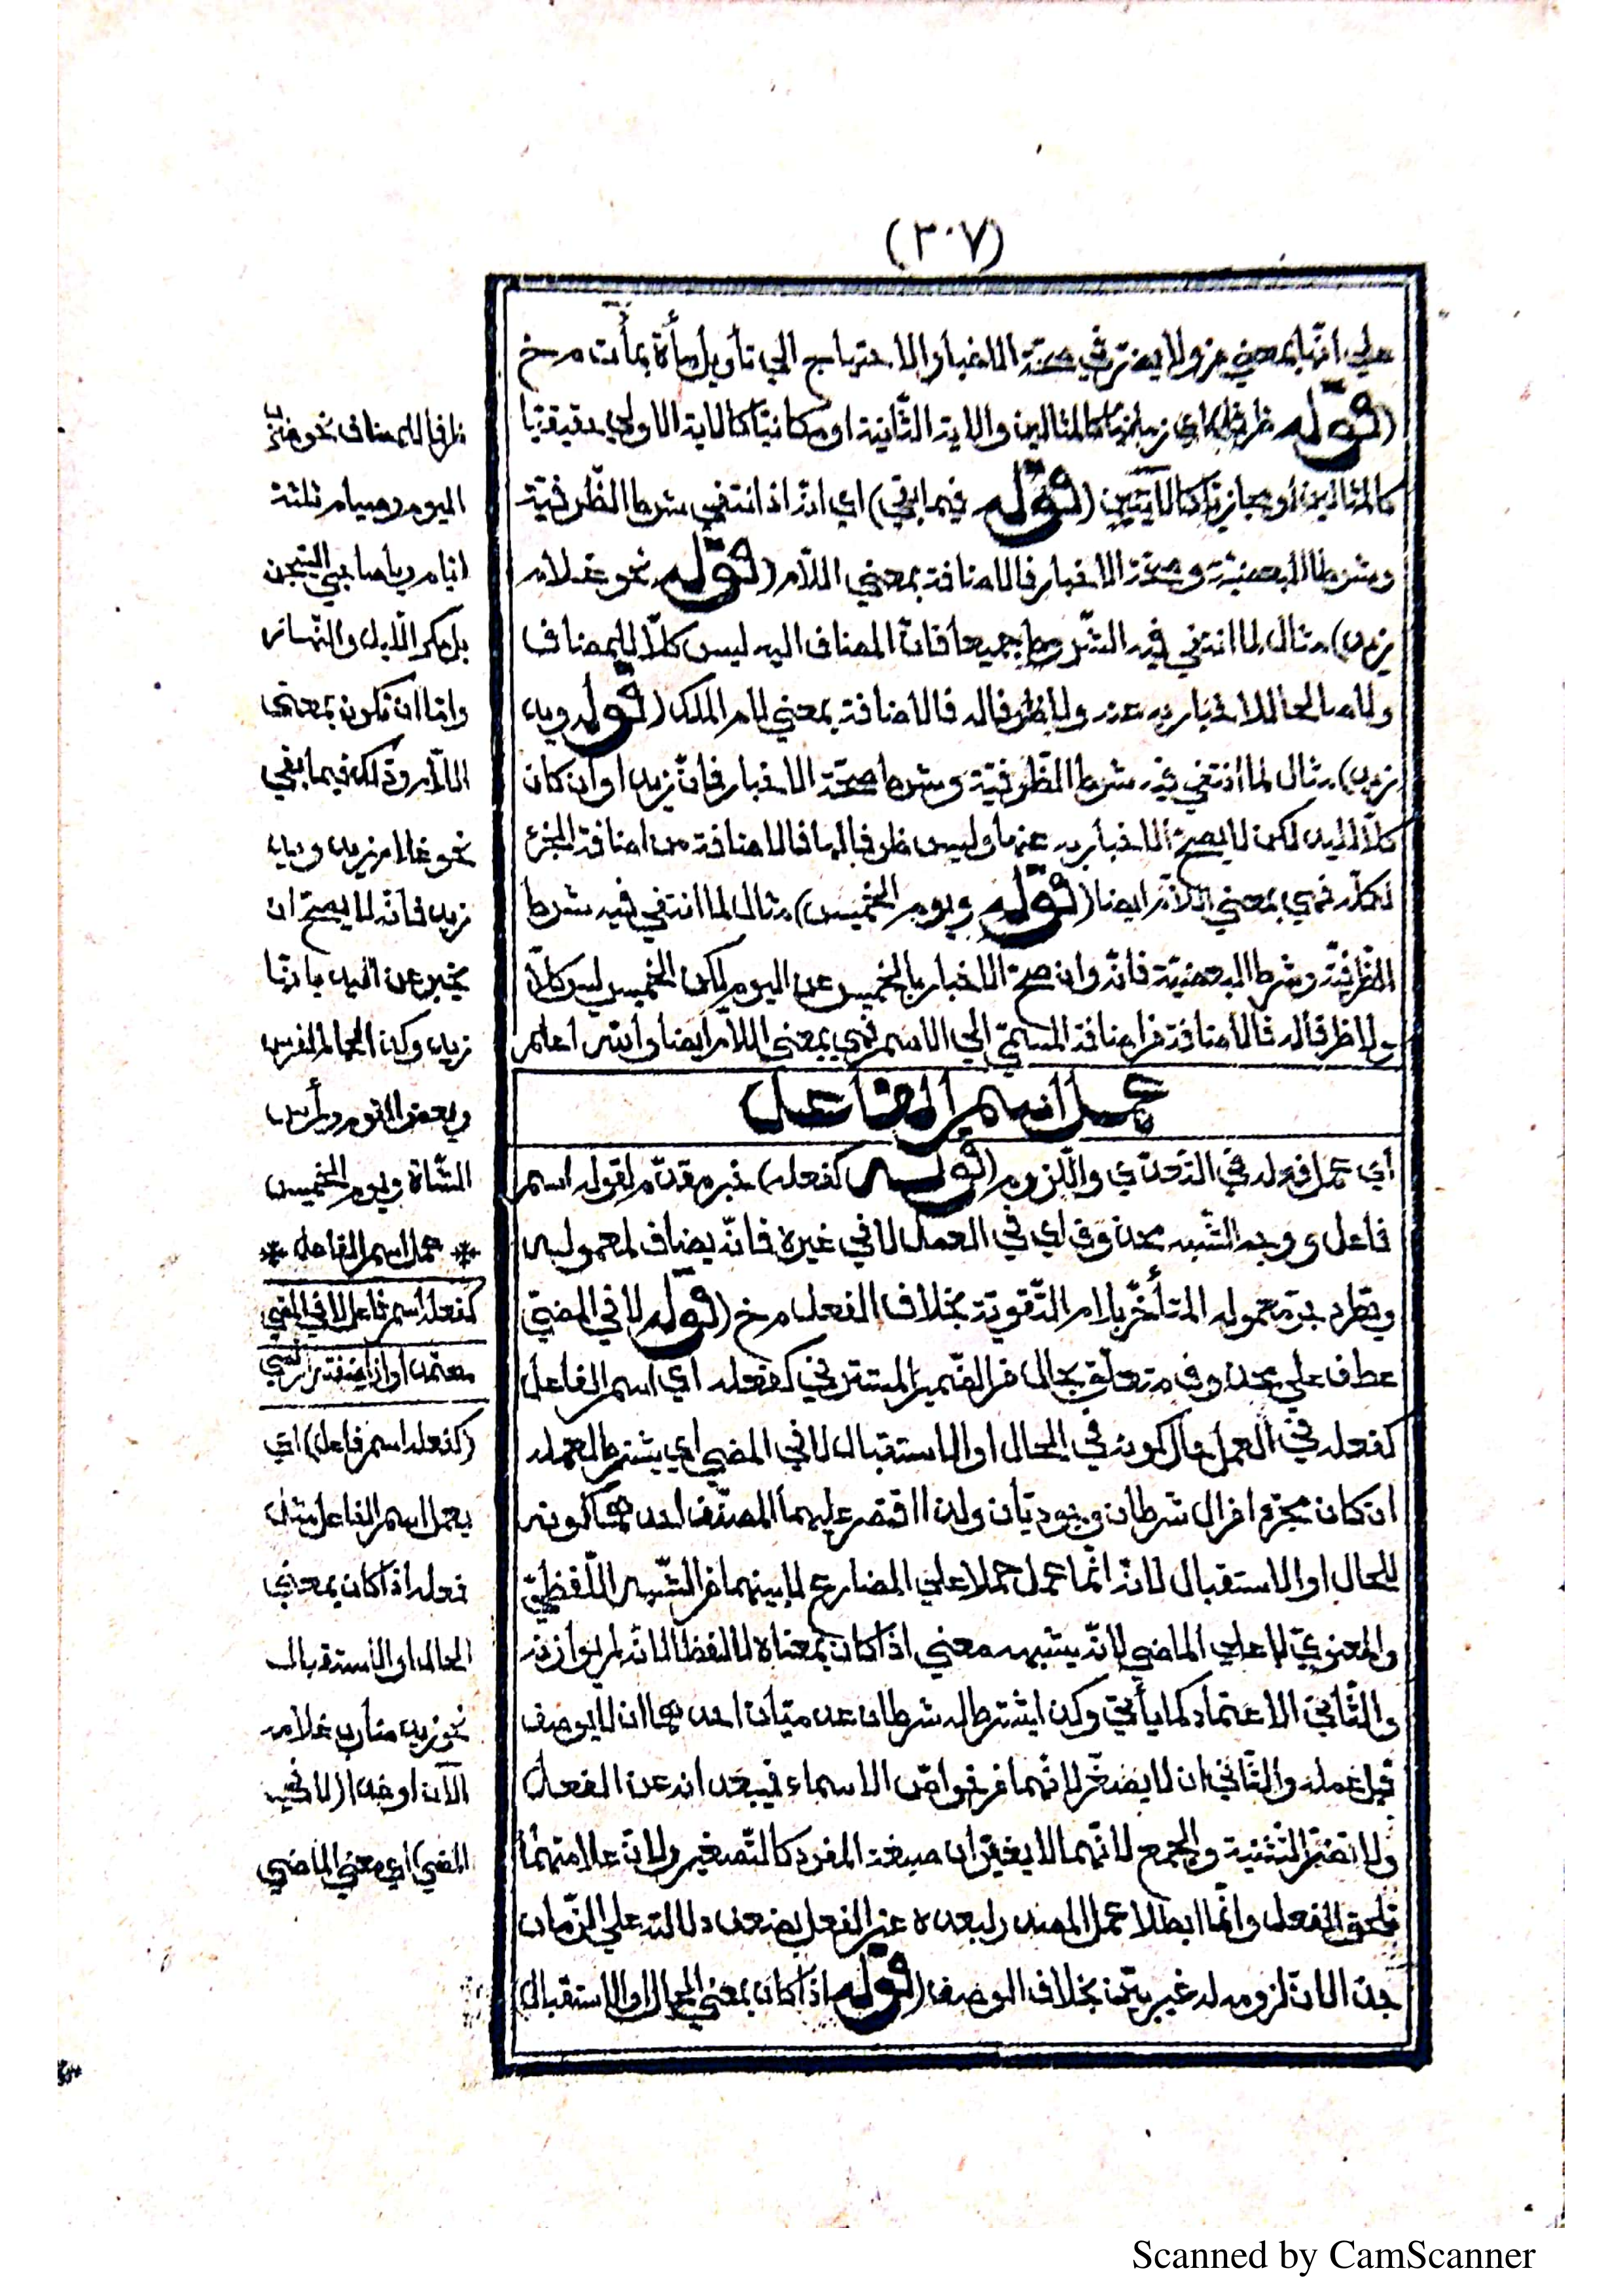 (٣٠٧)
علي انها بمعني من ولا يضر في صحة الاخبار الاحتياج الي تأويل مأة بمأت م خ
(قوله ظرفا) اي زمانيا كالمثالين والاية الثانية او مكانيا كالاية الاولي حقيقيا
كالمثالين او مجازيا كالآيتين (قوله فيما بقي) اي انه اذا انتفي شرط الظرفية
وشرطا البعضية وصحة الاخبار فالاضافة بمعني اللام (قوله نحو غلام
زيد) مثال لما انتفي فيه الشروط جميعا فان المضاف اليه ليس كلا للمضاف
ولا صالحا للاخبار به عنه ولا ظرفا له فالاضافة بمعني لام الملك (قوله ويد
زيد) مثال لما انتفي فيه شرط الظرفية وشرط صحة الاخبار فان زيدا وان كان
كلا لليد لكن لا يصح الاخبار به عنها وليس ظرفا لها فالاضافة من اضافة الجزء
لكله فهي بمعني اللام ايضا (قوله ويوم الخميس) مثال لما انتفي فيه شرط
الظرفية وشرط البعضية فانه وان صح الاخبار بالخميس عن اليوم لكن الخميس ليس كلا
ولا ظرفا له فالاضافة من اضافة المسمي الي الاسم فهي بمعني اللام ايضا والله اعلم
عمل اسم الفاعل
اي عمل فعله في التعدي واللزوم (قوله كفعله) خبر مقدم لقوله اسم
فاعل ووجه الشبه محذوف اي في العمل لا في غيره فانه يضاف لمعموليه
ويطرد جر معموله المتأخر بلام التقوية بخلاف الفعل م خ (قوله لا في المضي)
عطف علي محذوف متعلق بحال من الضمير المستتر في كفعله اي اسم الفاعل
كفعله في العمل حال كونه في الحال او الاستقبال لا في المضي اي يشترط لعمله
ان كان مجردا من ال شرطان وجوديان ولذا اقتصر عليهما المصنف احدهما كونه
للحال او الاستقبال لانه انما عمل حملا علي المضارع لما بينهما من الشبه اللفظي
والمعنوي لا علي الماضي لانه يشبهه معني اذا كان بمعناه لا لفظا لانه لم يوازنه
والثاني الاعتماد كما يأتي وكذا يشترط له شرطان عدميان احدهما ان لا يوصف
قبل عمله والثاني ان لا يصغر لانهما من خواص الاسماء فيبعدانه عن الفعل
ولا تضر التثنية والجمع لانهما لا يغيران صيغة المفرد كالتصغير ولان علامتهما
تلحق الفعل وانما ابطلا عمل المصدر لبعده عن الفعل بضعف دلالته علي الزمان
جدا لان لزومه له غير بين بخلاف الوصف (قوله اذا كان بمعني الحال او الاستقبال)
ظرفا للمضاف نحو ضرب
اليوم وصيام ثلثة
ايام ويا صاحبي السجن
بل مكر الليل والنهار
واما ان تكون بمعني
اللام وذلك فيما بقي
نحو غلام زيد ويد
زيد فانه لا يصح ان
يخبر عن اليد بانها
زيد وكذا
وبعض القوم ورأس
الشاة ويوم الخميس
* عمل اسم الفاعل *
كفعله اسم فاعل لا في المضي
(كفعله اسم فاعل) اي
يعمل اسم الفاعل مثل
فعله اذا كان بمعني
الحال او الاستقبال
نحو زيد ضارب غلامه
الآن او غدا (لا في
المضي) اي معني الماضي
Scanned by CamScanner